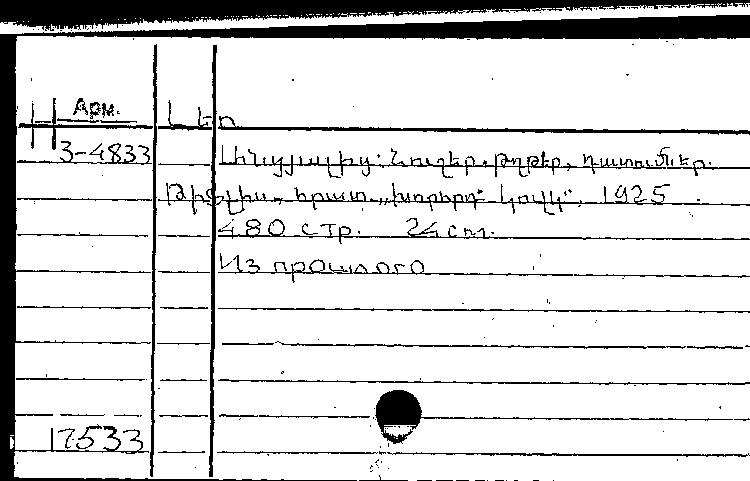 Арм.
Լեո
3-4833
Անցյալից: Նուշեր, թղթեր, դատումներ.
Թիֆլիս, հրատ. „Խորհրդ. Կովկ“, 1925
480 стр. 24 см.
Из прошлого
17533